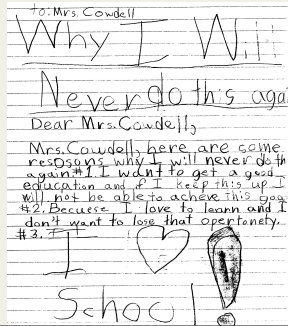 to: Mrs. Cowdell
Why I Will
Never do this agai
Dear Mrs. Cowdell,
Mrs. Cowdell, here are some
resosons why I will never do th
again #1 I want to get a good
education and if I keep this up I
will not be able to acheve this goa
#2. Becuese I love to learn and I
don't want to lose that opertonety.
#3. I
I ♡ !
School